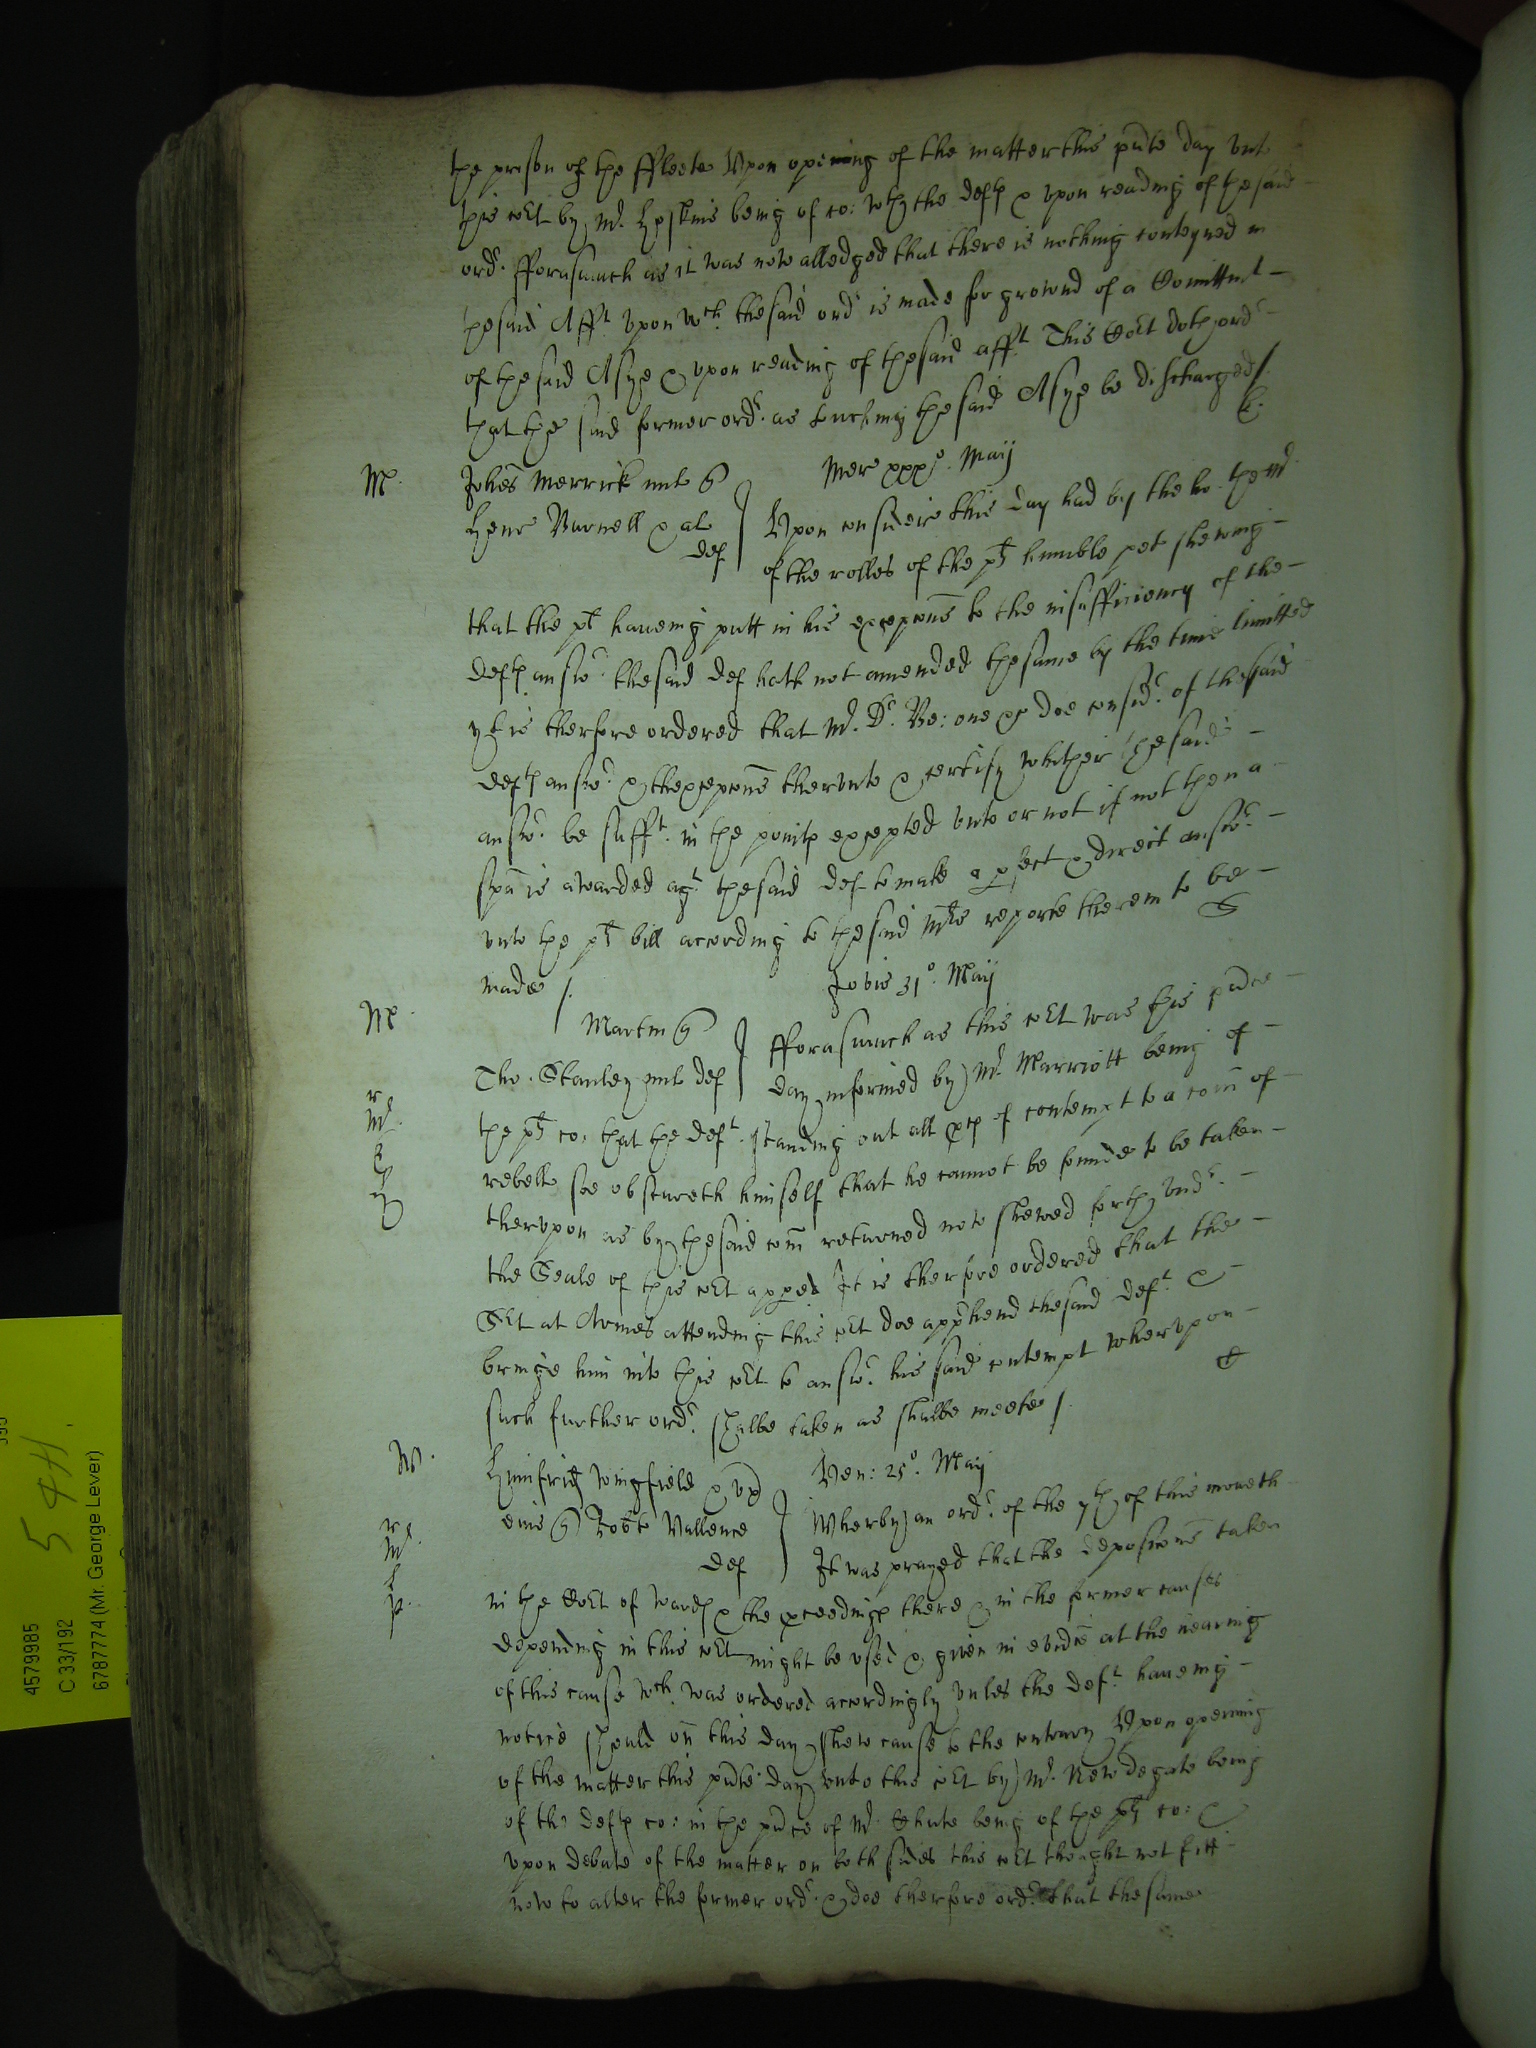 the prison of the ffleete Vpon opening of the matter this pñte day vnto
this cort by Mr. Hoskins being of co: wth the deftes & vpon reading of the said
ordr. fforasmuch as it was now alledged that there is nothing conteyned in
the said Afft. vpon wch. the said ordr is made for ground of a Comittmt
of the said Alsye & vpon reading of the said afft. This Cort doth ordr
that the said former ordr. as touching the said Alsye be discharged /.
M.
Johes Merrick unt
Henr Burnell & al
def
Mer xxxo. Maij
Vpon consideir this day had by the ho. the Mr
of the rolles of the plt humble pet shewing
that the plt haueing putt in his excepcons to the insufficiency of the
deftes answr. the said def hath not amended the same by the time limitted
yt is therfore ordered that Mr. Dr. Be: one &c doe considr. of the said
deftes answr. & thexcepcons thervnto & certify whither the said
answr. be sufft. in the pointes excepted vnto or not if not then a
spa is awarded agt. the said def to make a pfect & direct answr.
vnto the plt bill according to the said Mrs reporte therein to be
made /.
M.
Jovis 31o. Maij
Martin
Tho. Stanley unt def
fforasmuch as this cort was this pñte
day informed by Mr. Marriott being of
the plt co: that the deft. standing out all pces of contempt to a com of
rebell soe obscureth himself that he cannot be founde to be taken
thervpon as by the said com returned now shewed forth vndr.
the Seale of this cort appeđ It is therfore ordered that the
Sert at Armes attending this cort doe apphend the said deft. &
bringe him into this cort to answr. his said contempt whervpon
such further ordr. shalbe taken as shalbe meete /.
W.
Humfrid Wingfield & vx
eius Robte Vallence
def
Ven: 25o. Maij
Wherby an ordr. of the 7th of this moneth
It was prayed that the deposicons taken
in the Cort of Wardes & the pceedinges there & in the former causes
depending in this cort might be vsed & given in evidc at the hearing
of this cause wch. was ordered accordingly vnles the deft. haueing
notice should on this day shew cause to the contrary Vpon opening
of the matter this pñte day vnto this cort by Mr. Newdegate being
of the deftes co: in the pñce of Mr Chute being of the plt co: &
vpon debate of the matter on both sides this cort thought not fitt
now to alter the former ordr. & doe therfore ordr. that the same
4579985
C 33/192
6787774 (Mr. George Lever)